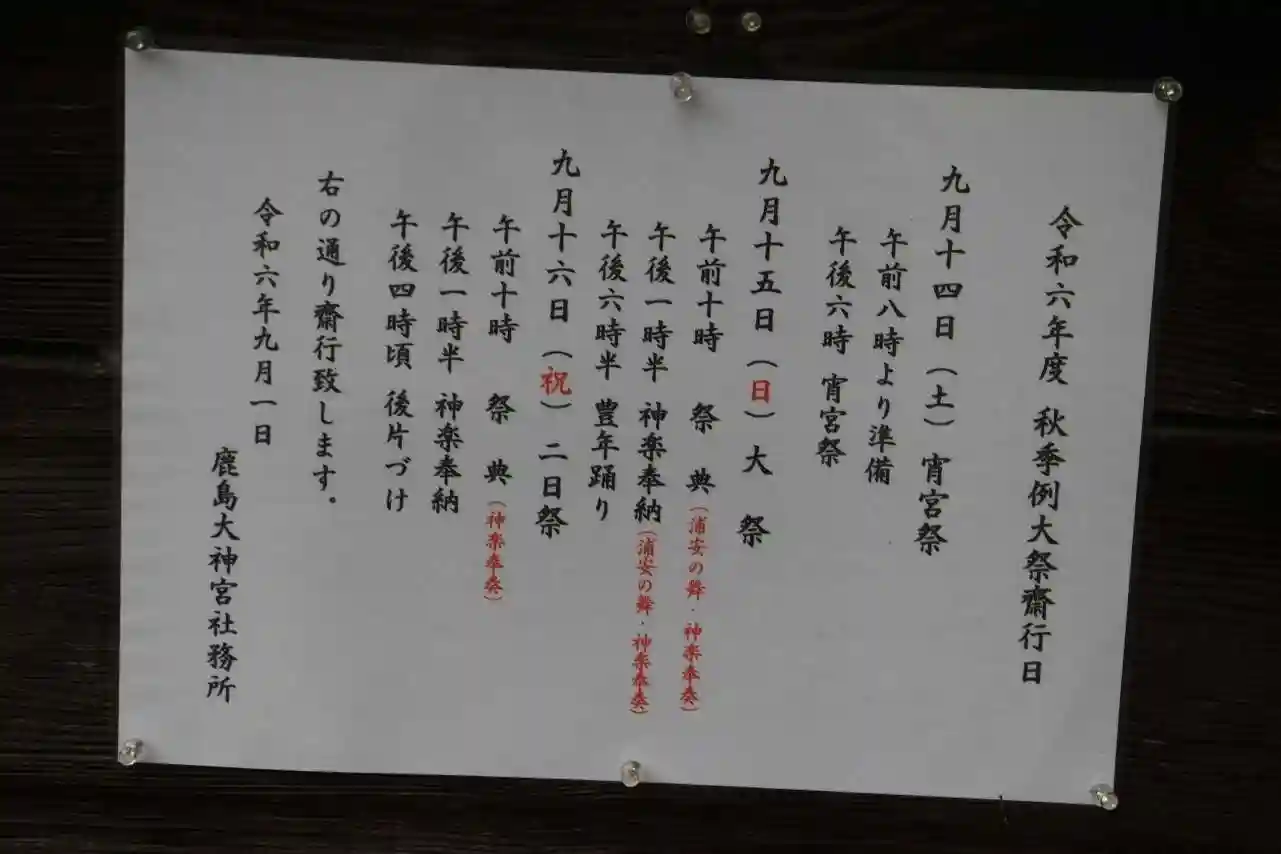 令和六年度 秋季例大祭齋行日
九月十四日（土）宵宮祭
午前八時より準備
午後六時 宵宮祭
九月十五日（日）大 祭
午前十時 祭 典（浦安の舞・神楽奉奏）
午後一時半 神楽奉納（浦安の舞・神楽奉奏）
午後六時半 豊年踊り
九月十六日（祝）二日祭
午前十時 祭 典（神楽奉奏）
午後一時半 神楽奉納
午後四時頃 後片づけ
右の通り齋行致します。
令和六年九月一日
鹿島大神宮社務所